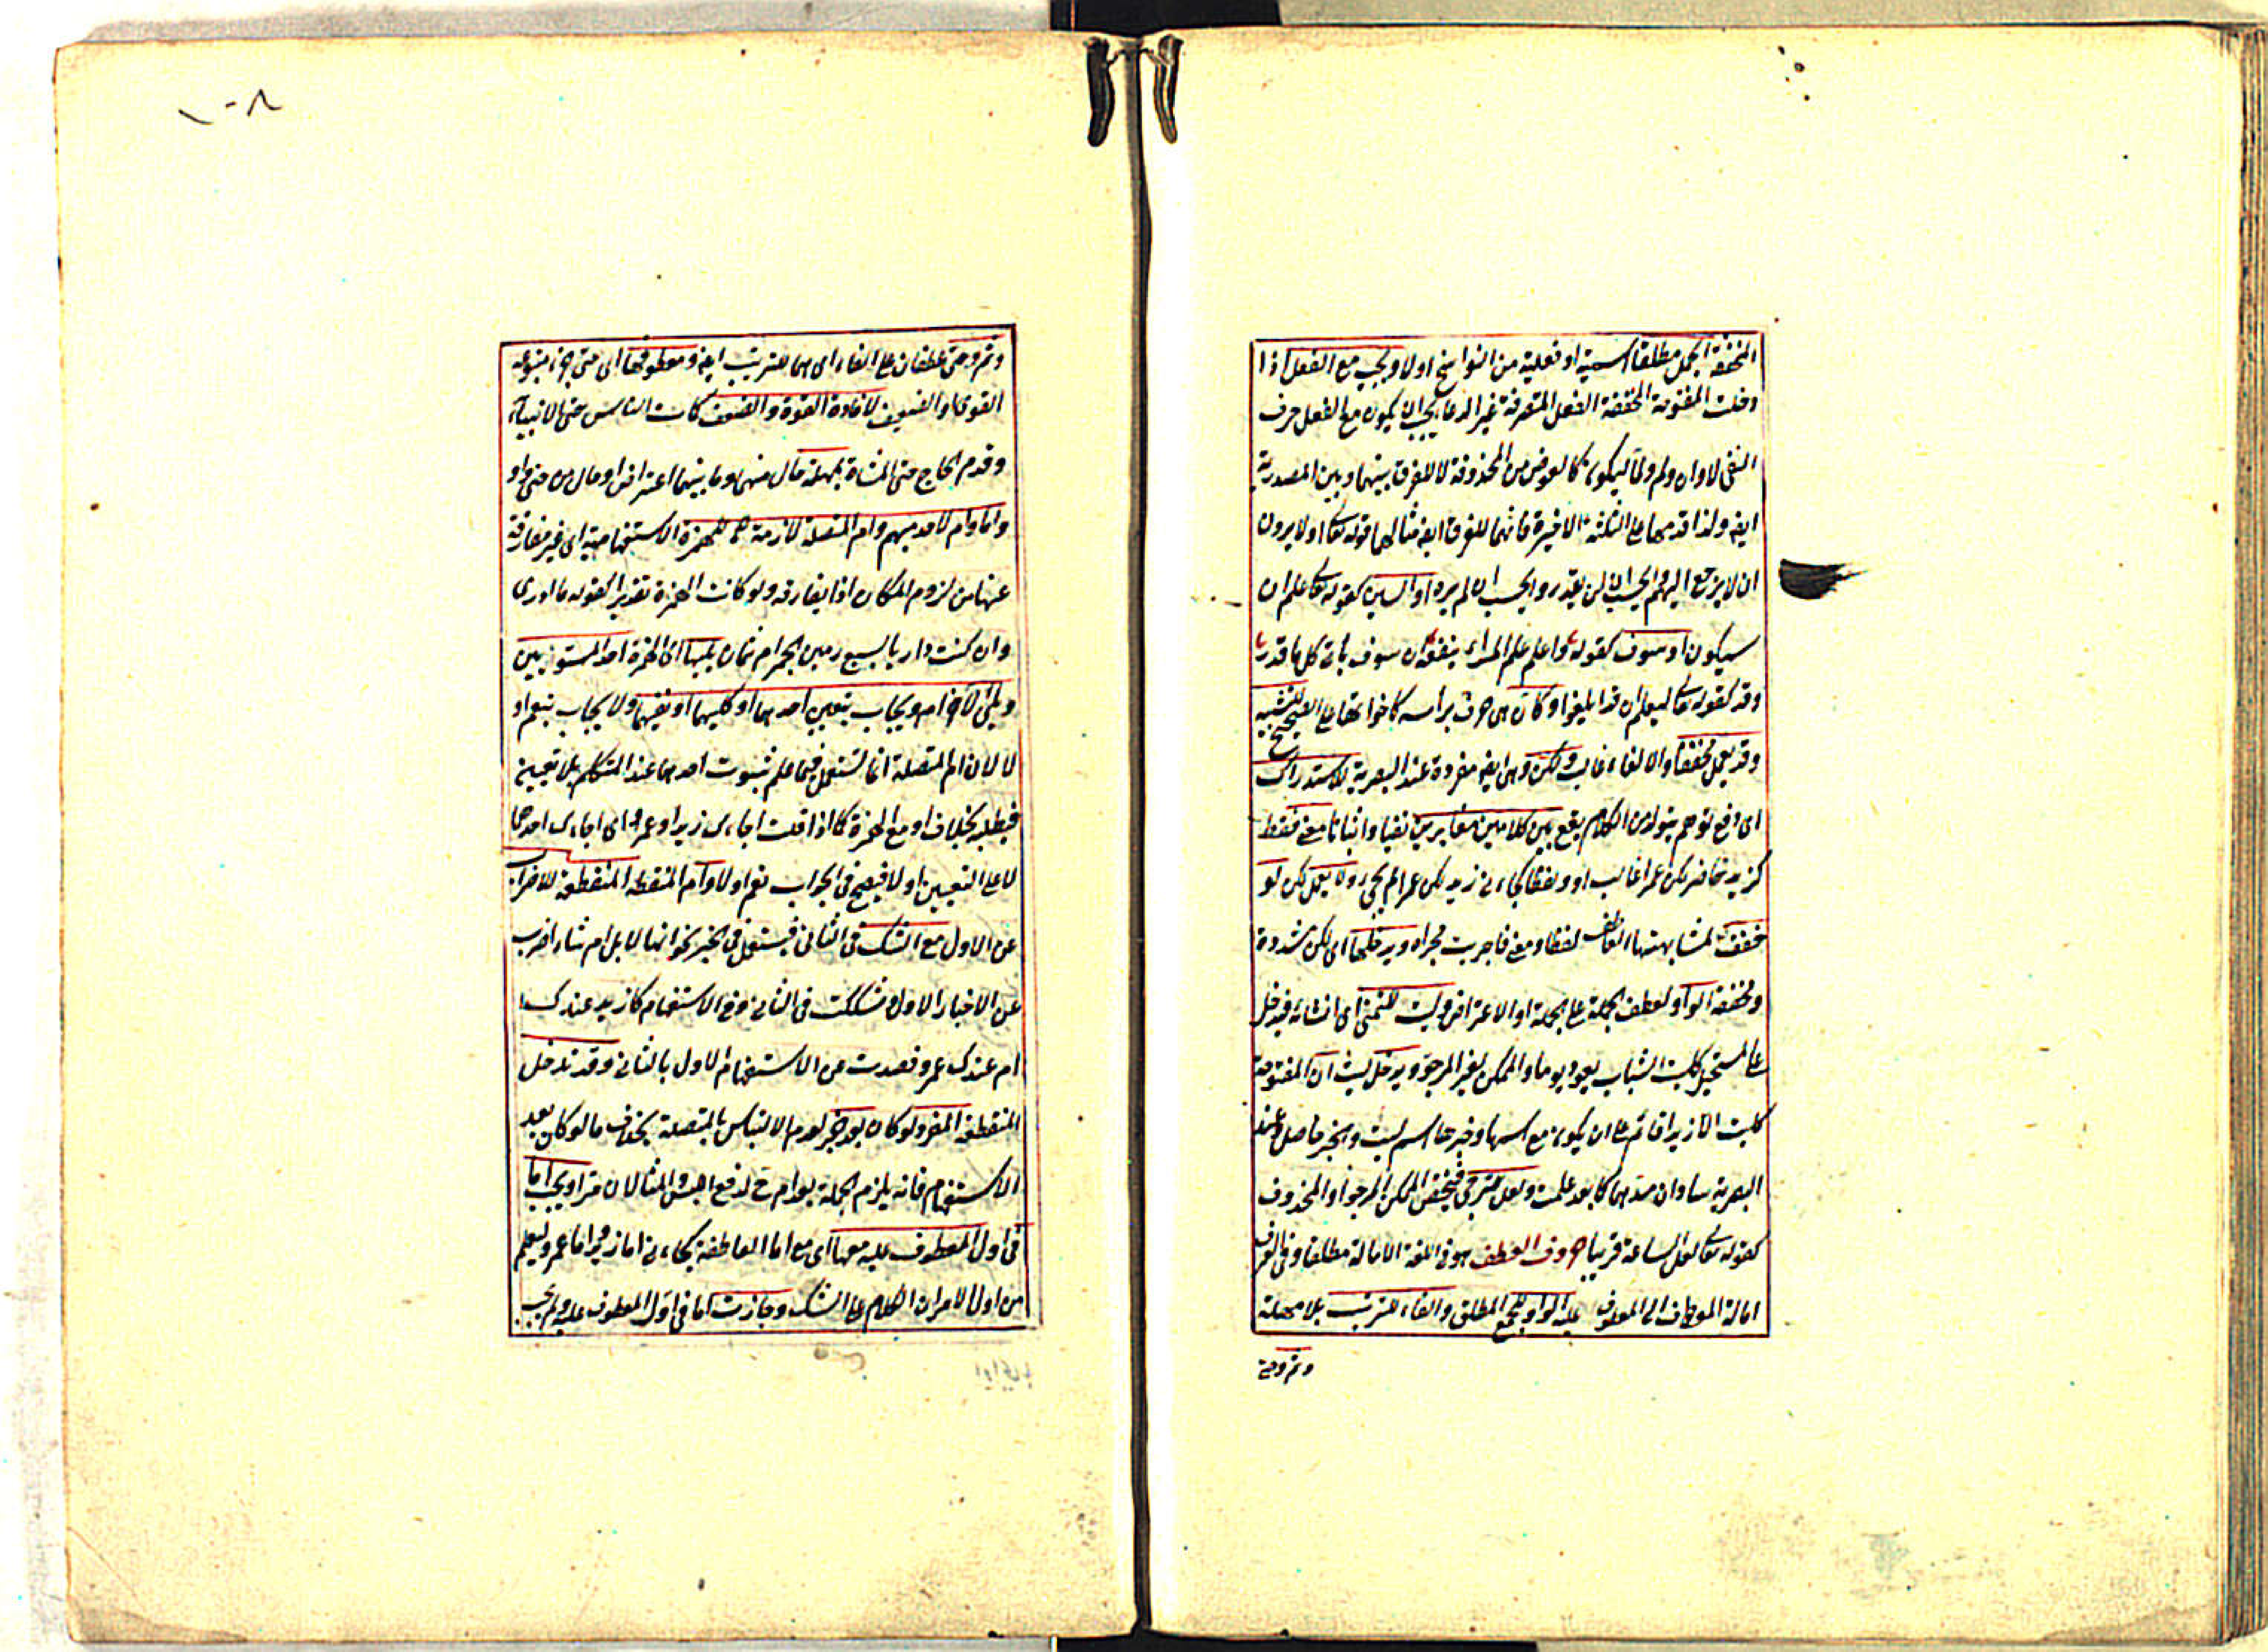 المخففة الجمل مطلقا اسمية او فعلية من النواسخ اولا ويجب مع الفعل اذا
دخلت المفتوحة المخففة الفعل المتصرفة غير الدعا يجب ان يكون مع الفعل حرف
النفى لا وان ولم ولما ليكون كالعوض من المحذوفة لا للفرق بينها وبين المصدرية
ايضا ولذا قدمها على الثلثة الاخيرة فانهما للفرق ايضا مثالها قوله تعا اولا يرون
ان لا يرجع اليهم ايحسب ان لن يقدر وايحسب ان لم يره او السين كقوله تعا علم ان
سيكون او سوف كقوله واعلم فعلم المراء ينفعه ان سوف ياتى كل ما قدرا
وقد كقوله تعا ليعلم ان قد ابلغوا وكان هى حرف براسه كاخواتها على الصحيح للتشبيه
وقد يعمل مخففا والالغاء غالب ولكن وهى ايضا مفردة عند البصرية للاستدراك
اى دفع توهم يتولد من الكلام يقع بين كلامين متغايرين نفيا واثباتا معنى فقط
كزيد حاضر لكن عمرا غائب او ولفظا كجاءنى زيد لكن عمرا لم يجئ ولا يعمل لكن لو
خففت لمشابهتها العاطف لفظا ومعنى فاجريت مجراه ويدخلها اى لكن مشددة
ومخففة الواو لعطف الجملة على الجملة او الاعتراض وليت للتمنى اى انشائه فيدخل
على المستحيل كليت الشباب يعود يوما والممكن الغير المرجو ويدخل ليت ان المفتوحة
كليت ان زيدا قائم على ان يكون مع اسمها وخبرها اسم ليت والخبر حاصل وعند
البصرية ساد ان مسدهما كما بعد علمت ولعل للترجى فيختص الممكن المرجو او المخوف
كقوله تعا لعل الساعة قريب حروف العطف هو فى اللغة الامالة مطلقا وفى العرف
امالة المعطوف الى المعطوف عليه الواو للجمع المطلق والفاء للترتيب بلا مهلة
وثم وحتى
وثم وحتى عطفان على الفاء اى هما للترتيب ايضا ومعطوفها اى حتى جزء متبوعه
القوى او الضعيف لافادة القوة والضعف كمات الناس حتى الانبياء
وقدم الحاج حتى المشاة بمهلة حال منهما وما بينهما اعتراض او حال من حتى واو
واما وام لاحد مبهم وام المتصلة لازمة للهمزة الاستفهامية اى غير مفارقة
عنها من لزوم المكان اذا يفارقه ولو كانت الهمزة تقديرا كقوله ما ادرى
وان كنت داريا بسبع رمين الجمر ام بثمان يليها اى الهمزة احد المستويين
ويلى الاخر ام ويجاب بتعيين احدهما او كليهما او نفيهما ولا يجاب بنعم او
لا لان ام المتصلة انما تستعمل فيما علم ثبوت احدهما عند المتكلم بلا تعيين
فيطلبه بخلاف او مع الهمزة كما اذا قلت اجاءك زيد او عمرو اى اجاءك احدهما
لا على التعيين اولا فيصح فى الجواب نعم او لا وام المنقطعة للاضراب
عن الاول مع الشك فى الثانى فيستعمل فى الخبر نحو انها لابل ام شاء اضرب
عن الاخبار الاول وشككت فى الثانى وفى الاستفهام كازيد عندك
ام عندك عمرو قصدت من الاستفهام الاول بالثانى وقد تدخل
المنقطعة المفرد لو كان بعد خبر لعدم الالتباس بالمتصلة بخلاف ما لو كان بعد
الاستفهام فانه يلزم الجملة بعد ام ح لدفع اللبس والمثالان مرا ويجب اما
فى اول المعطوف عليه معها اى مع اما العاطفة كجاءنى اما زيد واما عمرو ليعلم
من اول الامر ان الكلام على الشك وجازت اما فى اول المعطوف عليه ولم يجب